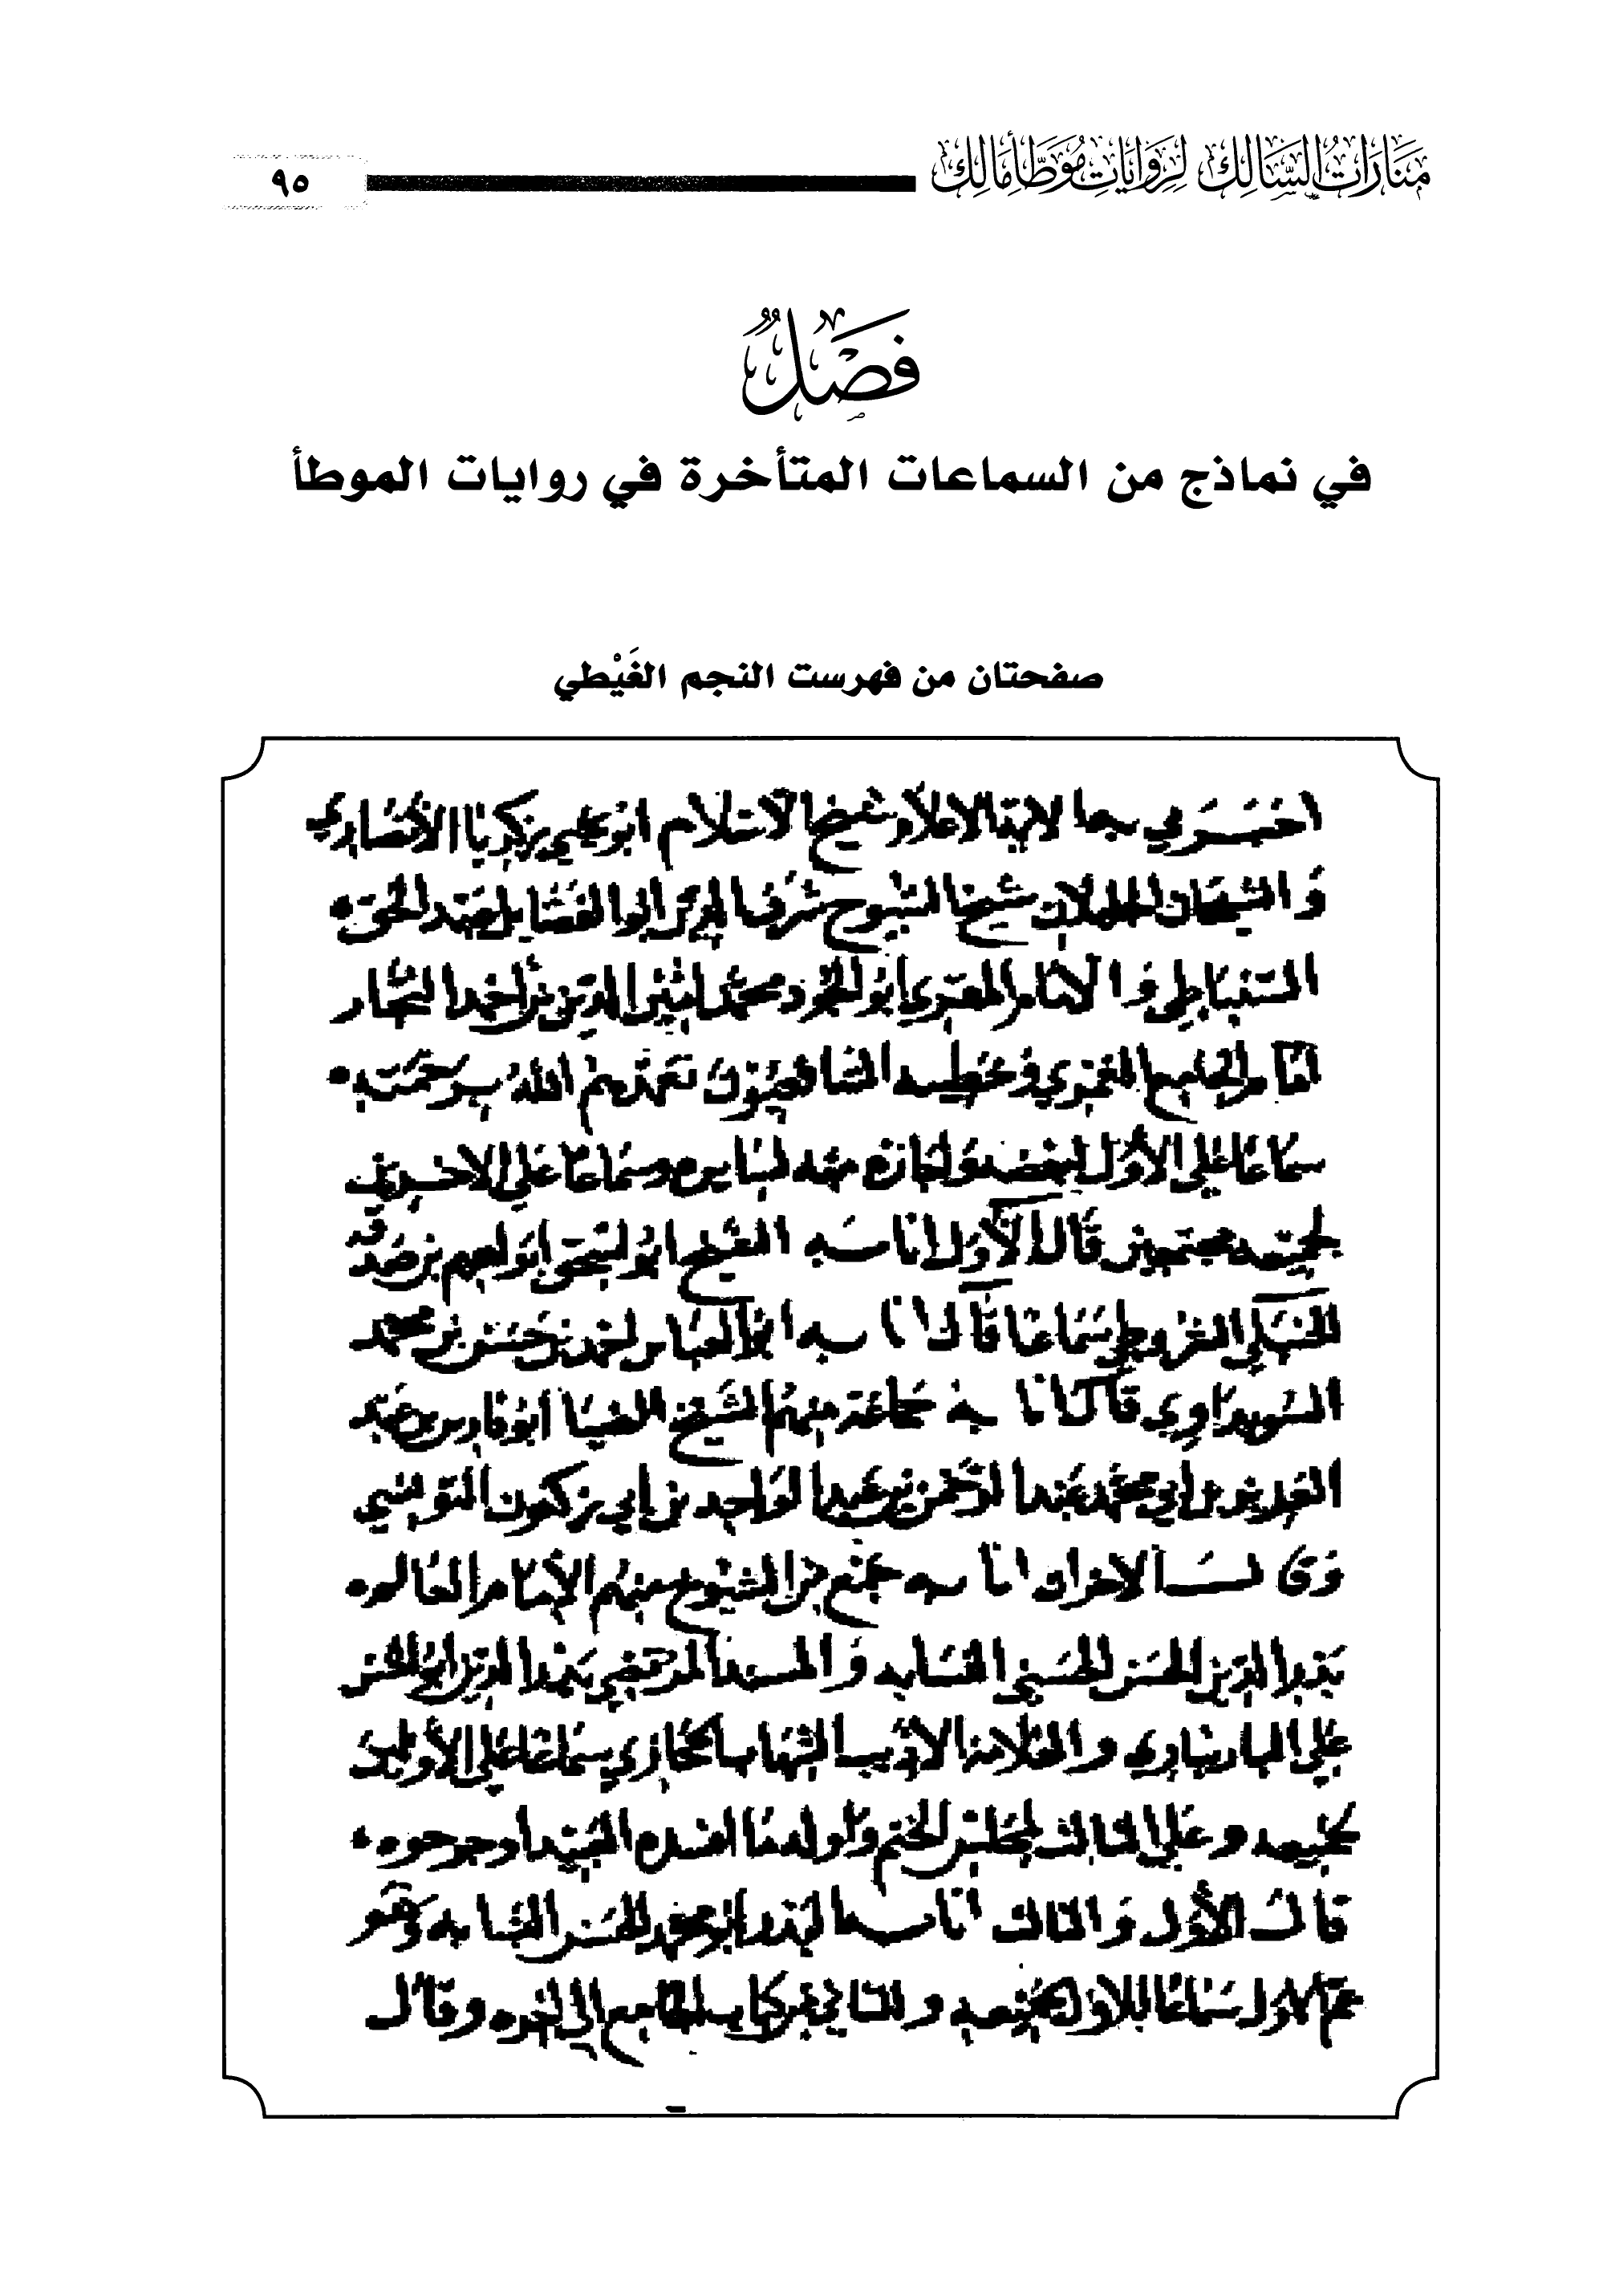 مَنَارَاتُ السَّالِك لِرِوَايَاتِ مُوَطَّأ مَالِك
٩٥
فَصْلٌ
في نماذج من السماعات المتأخرة في روايات الموطأ
صفحتان من فهرست النجم الغَيْطي
الاسلام ابو يحيى زكريا الانصاري
والشيخان شيخ الشيوخ شرف الدين ابو الفضايل عبد الحق
السنباطي والامام المقري ابو الجود محمد امين الدين بن احمد النجار
امام الجامع الغمري وخطيبه الشافعيون تغمدهم الله برحمته
سماعا على الاول لبعضه واجازة منه لسايره وسماعا على الاخرين
لجميعه مجتمعين قال الاول انا به الشيخ ابو اسحق ابراهيم بن صدقه
الحنبلي سماعا قال انا به ابو العباس احمد بن حسن بن محمد
السويداوي قال انا به جماعة منهم الشيخ الضيا ابو فارس عبد
العزيز بن ابي محمد عبد الرحمن بن عبد الواحد بن ابي زكنون التونسي
وقال الاخران انا به جمع من الشيوخ منهم الامام العالم
بدر الدين الحسن الحسني النسابه والمسند الدين ابو الحسن
علي البارنباري والعلامة الاديب الشهاب الحجازي سماعا على الاولين
لجميعه وعلى الثالث لمجلس الختم
قال الاول والثالث انا به البدر ابو محمد الحسن النسابه وهو
عم الاول سماعا للاول لجميعه والثاني من كتاب الجامع الى اخره وقال